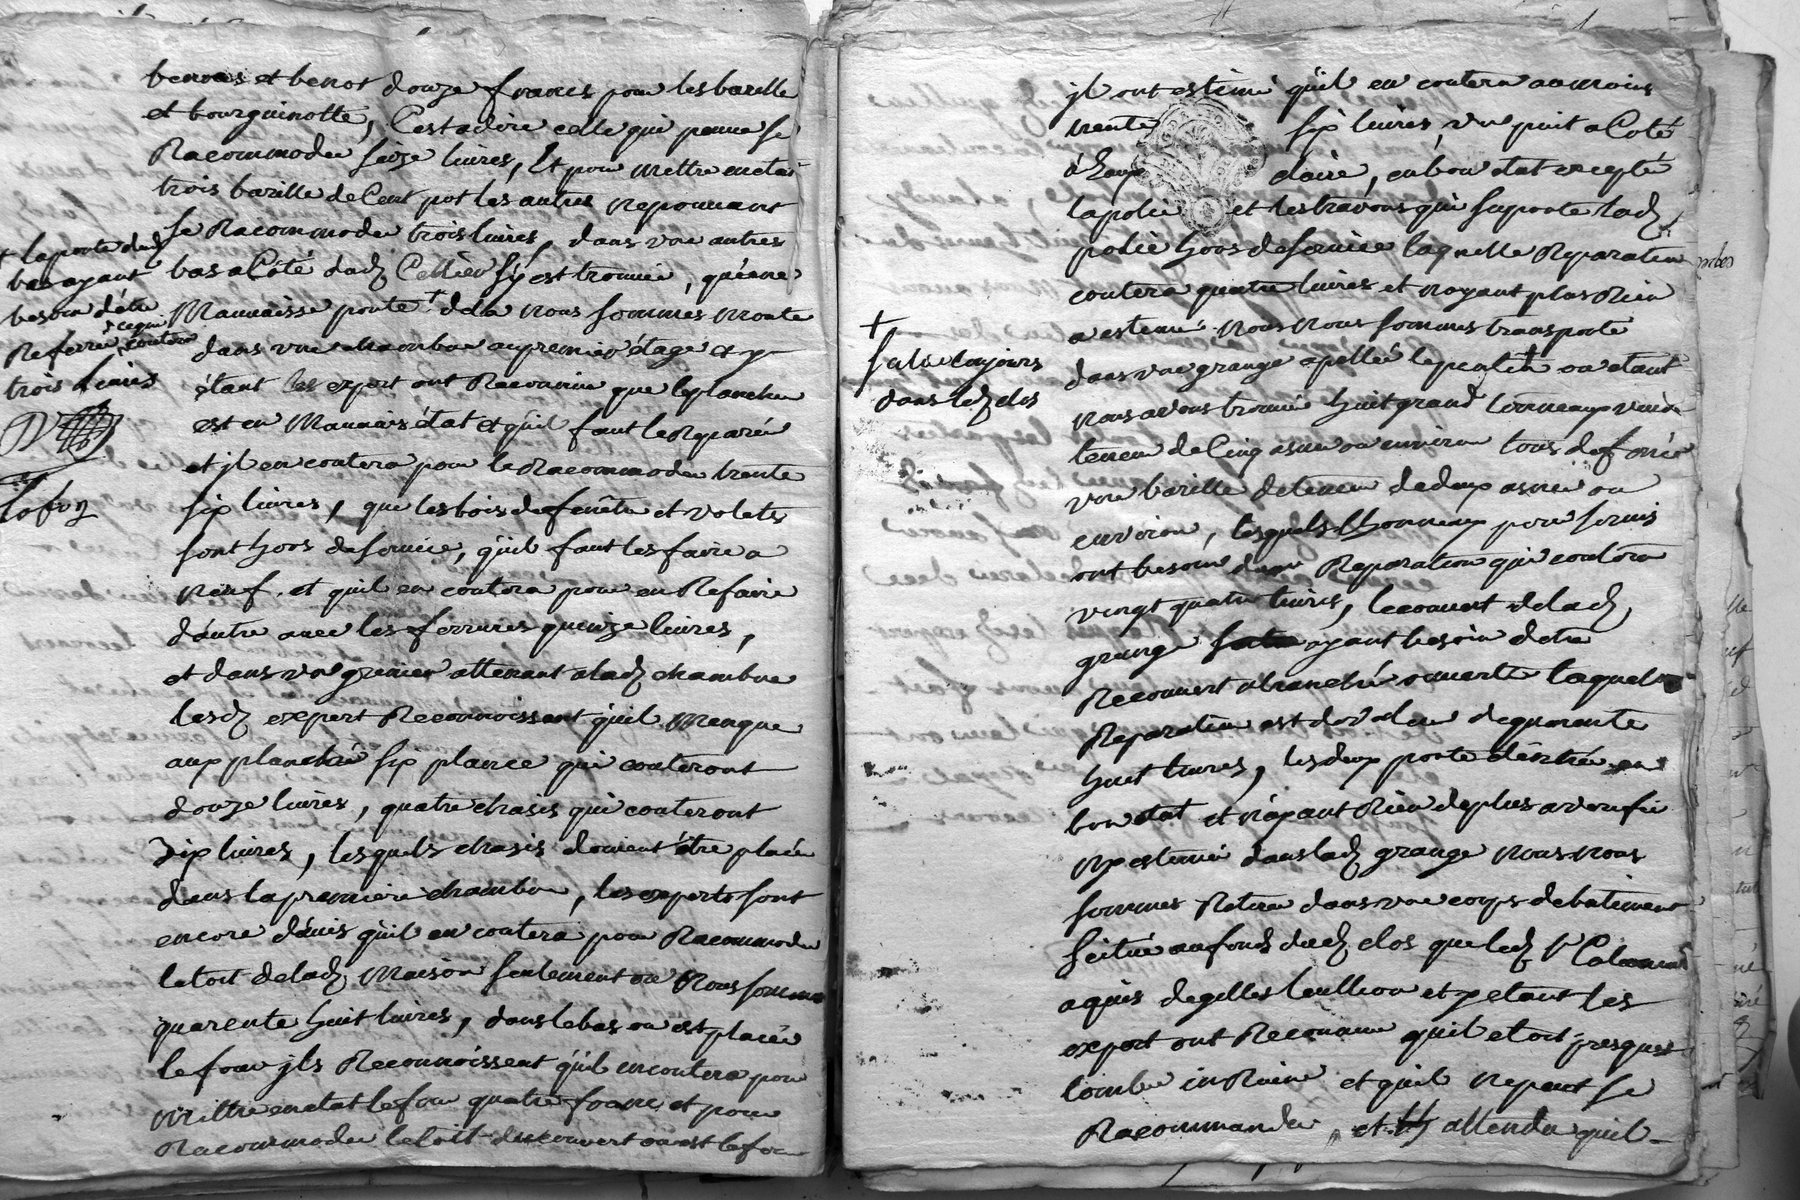 benots et benot douze francs pour les barille
et bourguinotte, C'est adire celle qui peuve se
Racommoder seize livres, Et pour mettre en etat
trois barille de Cent pot les autres ne pouvant
se Racommoder trois livres, dans une autres
bas a Côté dud cellier s'y est trouvée, qu'une
Mauvaisse porte + dela nous sommes monte
dans une chambre au premier étage et y
étant les expert ont Reconnue que le plancher
est en Mauvais état et qu'il faut le Réparér
et jl en coutera pour le Racommoder trente
six livres, que les bois de fenêtre et volets
sont hors de service, qu'il faut les faire a
neuf, et quil en coutera pour en Refaire
d'autre avec les ferrures queinze livres,
et dans un grenier attenant a lad chambre
lesd expert Reconnoissent qu'il Menque
aux planché six plance qui couteront
douze livres, quatre chasis qui couteront
dix livres, lesquels chasis doivent être placée
dans la premiere chambre, les experts sont
encore d'avis qu'il en coutera pour Racommoder
le toit de lad Maison seulement ou Nous sommes
quarente huit livres, dans le bas ou est placée
le four jls Reconnoissent qu'il en coutera pour
mettre en etat le four quatre franc, et pour
Racommoder le toit du couvert ou est le four
+ la porte dud
bas ayant
besoin d'être
Referrée ce qui coutera
trois livres
jl ont estimé qu'il en coutera au moins
trente six livres, un puit a Côté
d'Eau claire, en bon état excepté
la polie et les travons qui suporte lad
polie hors de service laquelle Reparation
coutera quatre livres et n'ayant plus Rien
a estimé. Nous Nous sommes transporte
dans une grange apellée le + ou etant
nous avons trouvée huit grand tonneaux vuide
teneu de Cinq asnée ou environ tous de
une barille de teneu de deux asnée ou
environ, lesquels thonneaux pour servir
ont besoin d'une Reparation qui coutera
vingt quatre livres, le couvert de lad
grange ayant besoin d'etre
Recouvert a tranché ouverte laquelle
Reparation est de valeur de quarante
huit livres, les deux porte d'entrée en
bon état et n'ayant Rien de plus a vérifié
ny estimé dans lad grange nous nous
sommes Retiré dans un corps de batiment
scitué au fonds dud clos que led Sr
a aquis de gelles Leullion et y etant les
expert ont Reconnue qu'il etoit presques
tombé en Ruine et qu'il ne peut se
Racommander, et attendu quil
+
sutué toujours
dans led clos